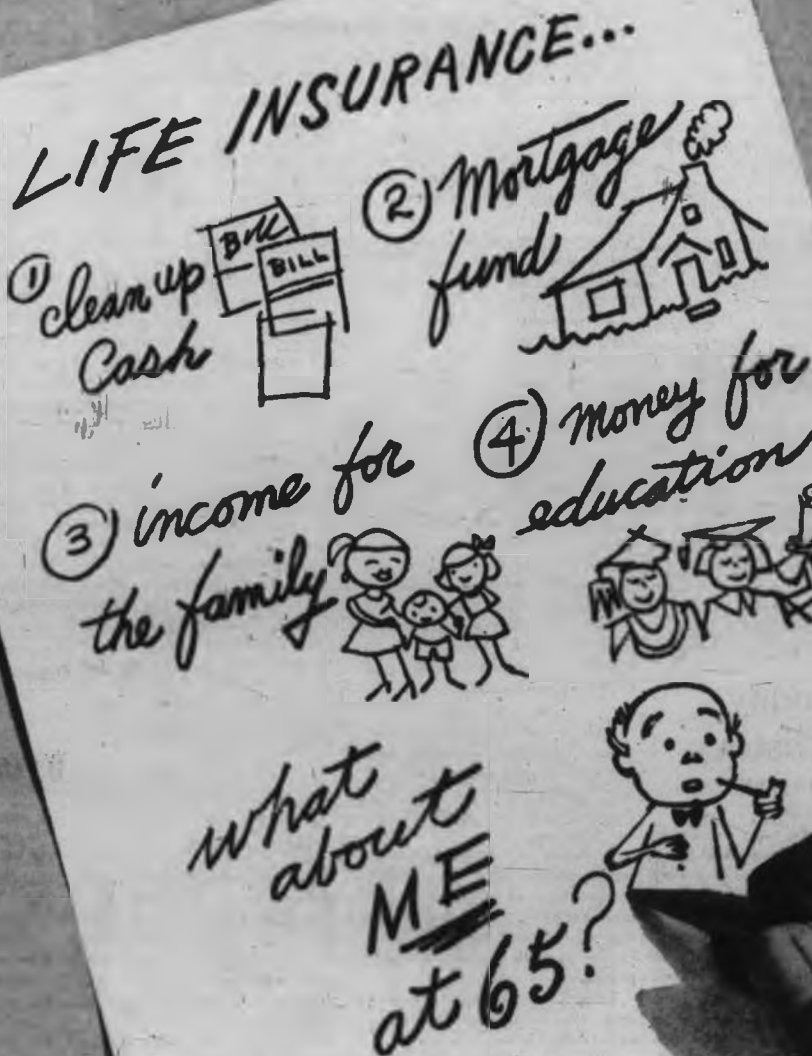 LIFE INSURANCE...
① clean up
Cash
BILL
BILL
② Mortgage
fund
③ income for
the family
④ money for
education
what
about
ME
at 65?